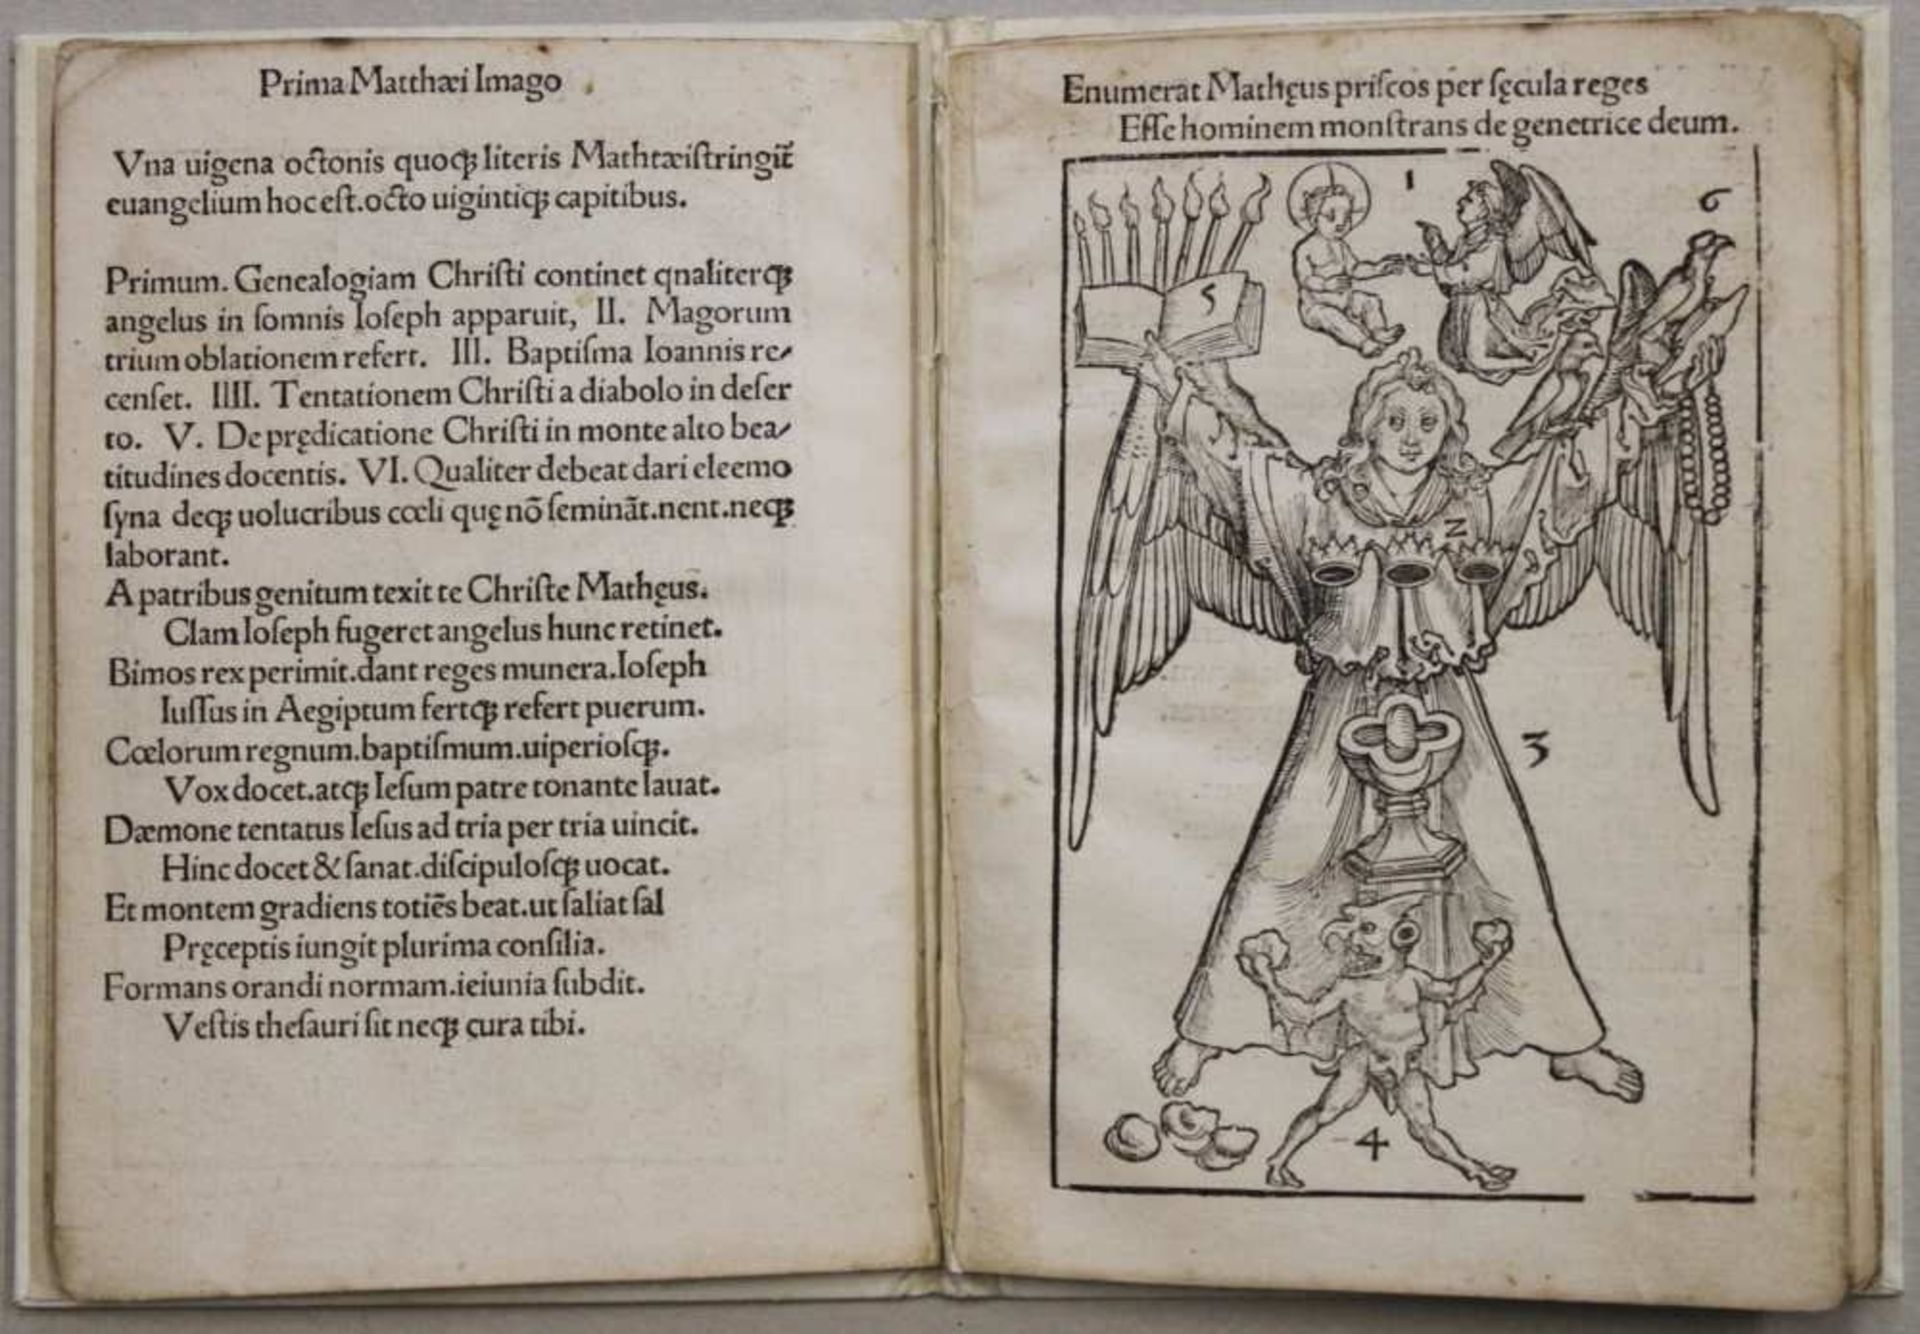 Prima Matthæi Imago
Vna uigena octonis quoqꝫ literis Mathæi stringit̃
euangelium hoc est. octo uigintiqꝫ capitibus.
Primum. Genealogiam Chriſti continet qnaliterqꝫ
angelus in ſomnis Ioſeph apparuit, II. Magorum
trium oblationem refert. III. Baptiſma Ioannis re⸗
cenſet. IIII. Tentationem Chriſti a diabolo in deſer
to. V. De prędicatione Chriſti in monte alto bea⸗
titudines docentis. VI. Qualiter debeat dari eleemo
ſyna deqꝫ uolucribus cœli quę nō ſeminãt. nent. neqꝫ
laborant.
A patribus genitum texit te Chriſte Mathęus.
Clam Ioſeph fugeret angelus hunc retinet.
Bimos rex perimit. dant reges munera. Ioſeph
Iuſſus in Aegiptum fertqꝫ refert puerum.
Cœlorum regnum. baptiſmum. uiperioſqꝫ.
Vox docet. atqꝫ Ieſum patre tonante lauat.
Dæmone tentatus Ieſus ad tria per tria uincit.
Hinc docet & ſanat. diſcipuloſqꝫ uocat.
Et montem gradiens totiēs beat. ut ſaliat ſal
Pręceptis iungit plurima conſilia.
Formans orandi normam. ieiunia ſubdit.
Veſtis theſauri ſit neqꝫ cura tibi.
Enumerat Mathęus priſcos per ſęcula reges
Eſſe hominem monſtrans de genetrice deum.
1
6
5
2
3
4